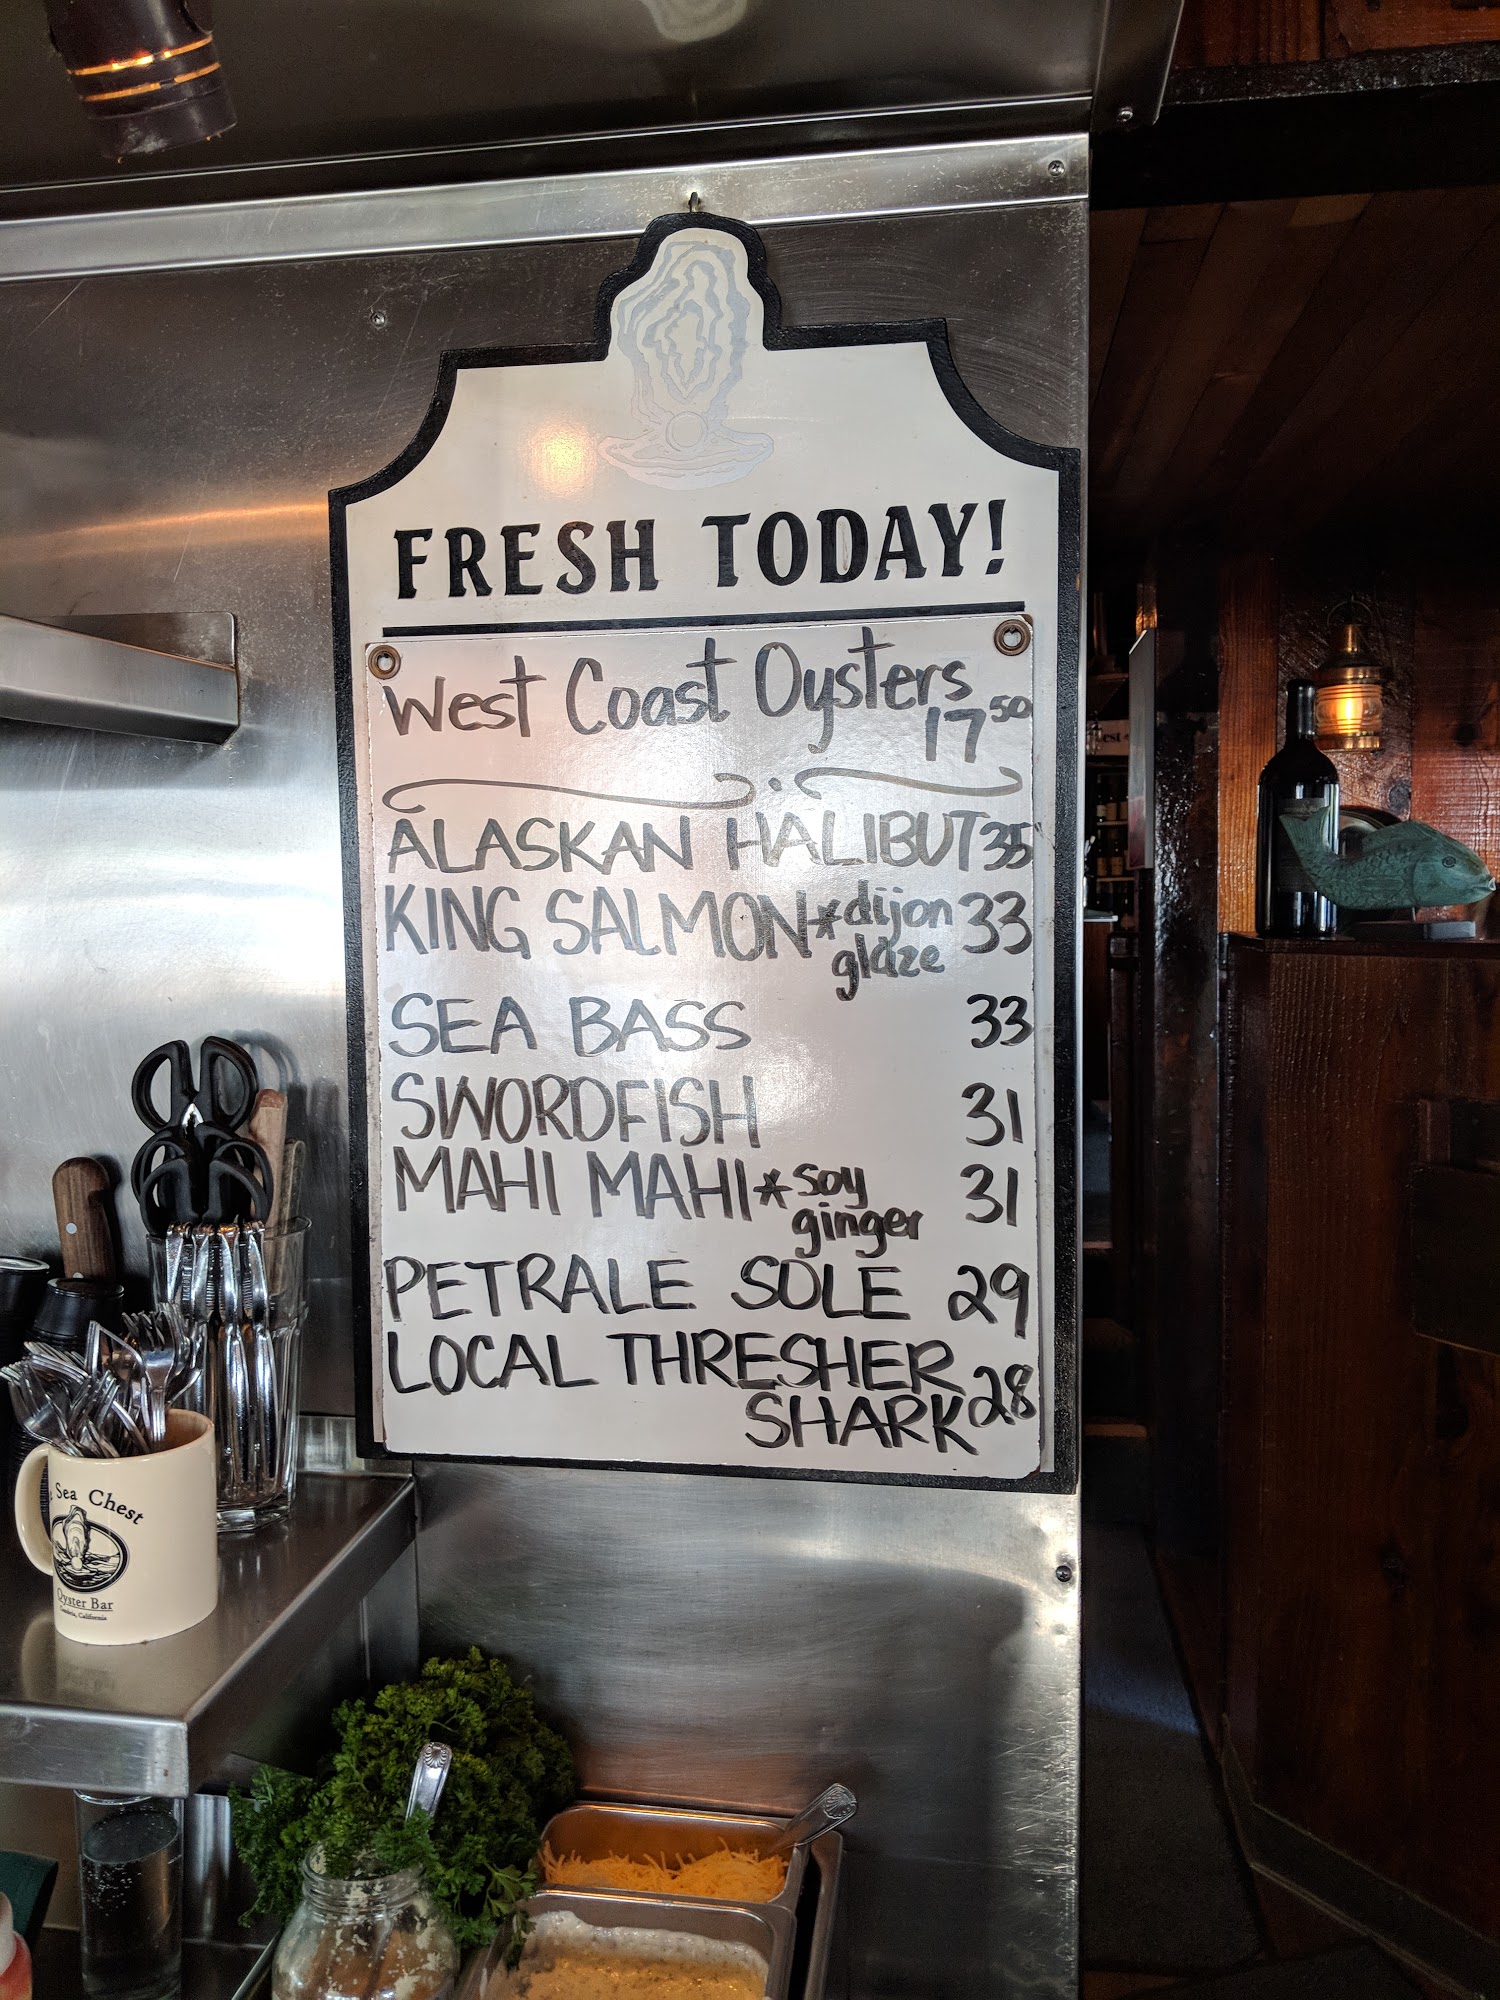 FRESH TODAY!
West Coast Oysters
17 50
ALASKAN HALIBUT 35
KING SALMON * dijon 33
glaze
SEA BASS 33
SWORDFISH 31
MAHI MAHI * soy 31
ginger
PETRALE SOLE 29
LOCAL THRESHER
SHARK 28
Sea Chest
Oyster Bar
Cambria, California